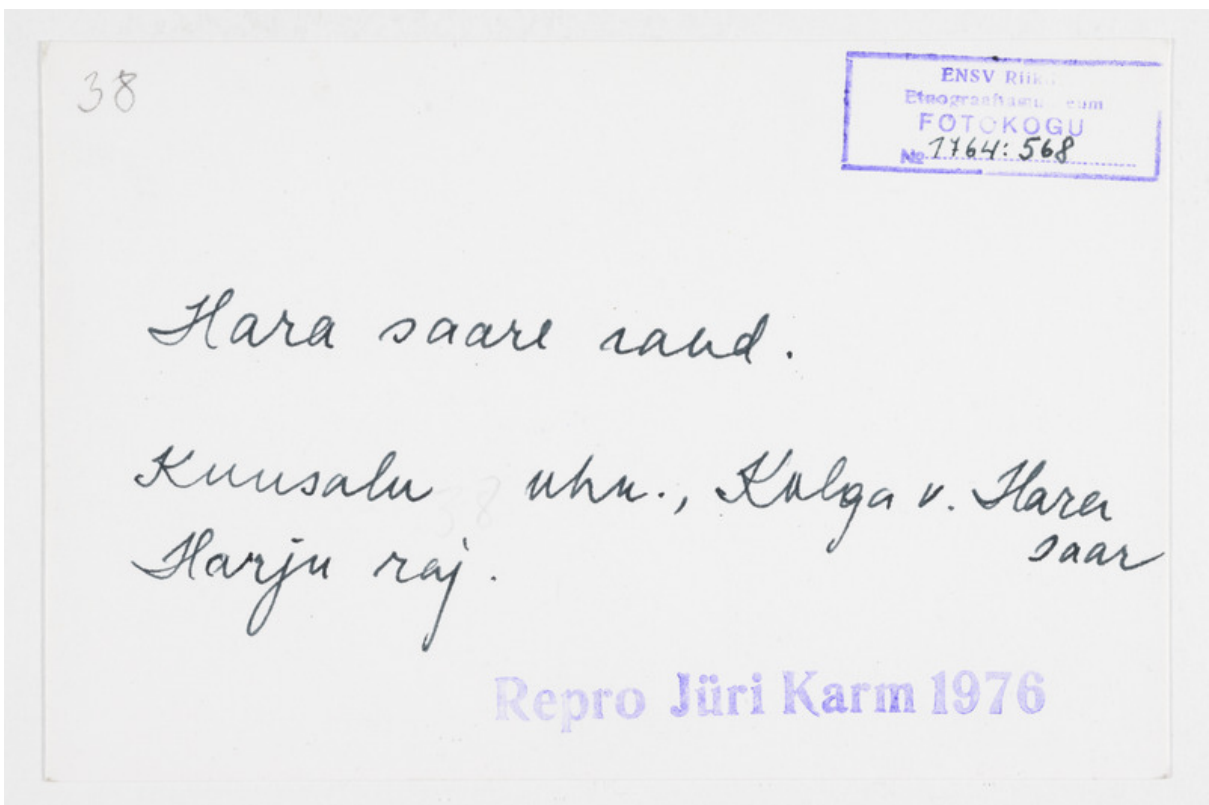 38
ENSV Riikl.
Etnograafiamuuseum
FOTOKOGU
№ 1764:568
Hara saare rand.
Kuusalu khk., Kolga v. Hara
saar
Harju raj.
Repro Jüri Karm 1976